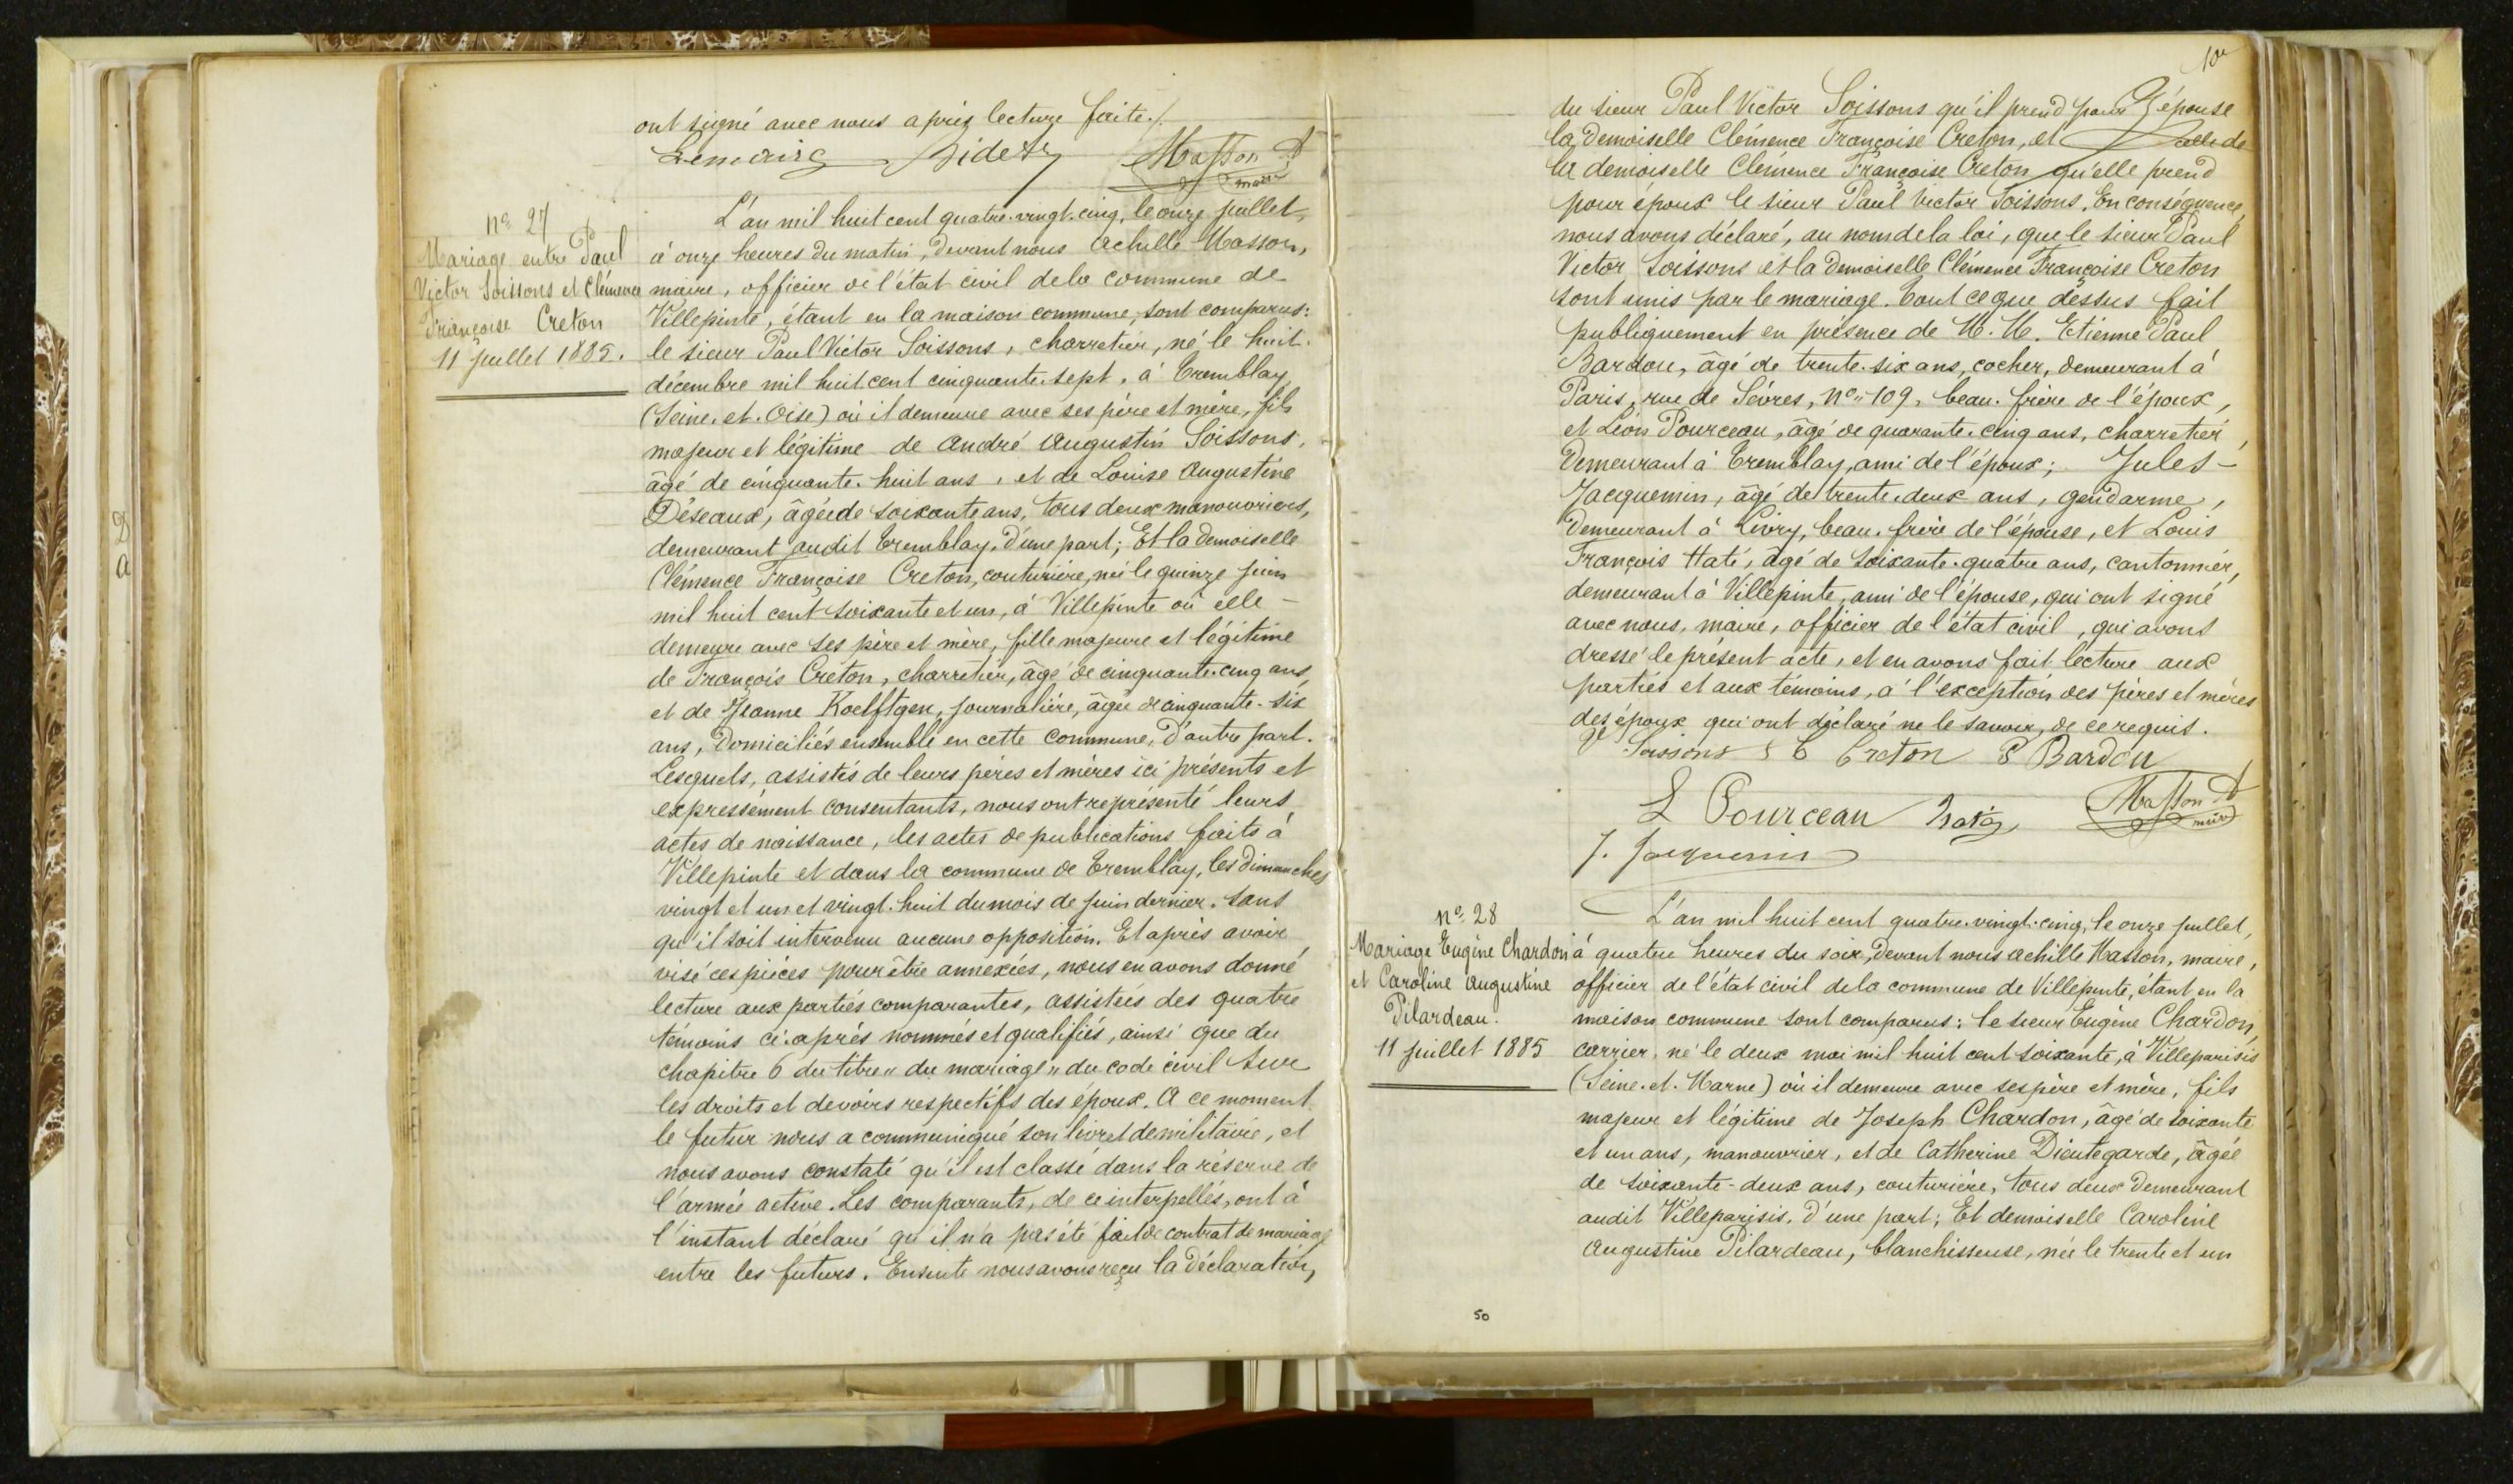 ont signé avec nous après lecture faite./.
Lemaire Masson A
maire
nº 27
Mariage entre Paul
Victor Soissons et Clémence
Françoise Creton
11 juillet 1885.
L'an mil huit cent quatre-vingt-cinq, le onze juillet,
à onze heures du matin, devant nous Achille Masson,
maire, officier de l'état civil de la commune de
Villepinte, étant en la maison commune, sont comparus:
le sieur Paul Victor Soissons, charretier, né le huit
décembre mil huit cent cinquante-sept, à Tremblay
(Seine-et-Oise) où il demeure avec ses père et mère, fils
majeur et légitime de André Augustin Soissons,
âgé de cinquante-huit ans, et de Louise Augustine
Déseaux, âgée de soixante ans, tous deux manouvriers,
demeurant audit Tremblay, d'une part; Et la demoiselle
Clémence Françoise Creton, couturière, née le quinze juin
mil huit cent soixante et un, à Villepinte où elle -
demeure avec ses père et mère, fille majeure et légitime
de François Creton, charretier, âgé de cinquante-cinq ans,
et de Jeanne Koelftgen, journalière, âgée de cinquante-six
ans, domiciliés ensemble en cette commune, d'autre part.
Lesquels, assistés de leurs pères et mères ici présents et
expressément consentants, nous ont représenté leurs
actes de naissance, les actes de publications faits à
Villepinte et dans la commune de Tremblay, les dimanches
vingt et un et vingt-huit du mois de juin dernier, sans
qu'il soit intervenu aucune opposition. Et après avoir
visé ces pièces pour être annexées, nous en avons donné
lecture aux parties comparantes, assistées des quatre
témoins ci-après nommés et qualifiés, ainsi que du
chapitre 6 du titre " du mariage " du code civil sur
les droits et devoirs respectifs des époux. A ce moment
le futur nous a communiqué son livret de militaire, et
nous avons constaté qu'il est classé dans la réserve de
l'armée active. Les comparants, de ce interpellés, ont à
l'instant déclaré qu'il n'a pas été fait de contrat de mariage
entre les futurs. Ensuite nous avons reçu la déclaration,
du sieur Paul Victor Soissons qu'il prend pour épouse
la demoiselle Clémence Françoise Creton, et celle de
la demoiselle Clémence Françoise Creton qu'elle prend
pour époux le sieur Paul Victor Soissons. En conséquence,
nous avons déclaré, au nom de la loi, que le sieur Paul
Victor Soissons et la demoiselle Clémence Françoise Creton
sont unis par le mariage. Tout ce que dessus fait
publiquement en présence de M.M. Etienne Paul
Bardou, âgé de trente-six ans, cocher, demeurant à
Paris, rue de Sèvres, nº 109, beau-frère de l'époux,
et Léon Pourceau, âgé de quarante-cinq ans, charretier,
demeurant à Tremblay, ami de l'époux; Jules -
Jacquemin, âgé de trente-deux ans, gendarme,
demeurant à Livry, beau-frère de l'épouse, et Louis
François Haté, âgé de soixante-quatre ans, cantonnier,
demeurant à Villepinte, ami de l'épouse, qui ont signé
avec nous, maire, officier de l'état civil, qui avons
dressé le présent acte, et en avons fait lecture aux
parties et aux témoins, à l'exception des pères et mères
des époux qui ont déclaré ne le savoir, de ce requis.
Soissons Creton Bardou
L Pourceau Masson A
maire
J. Jacquemin
nº 28
Mariage Eugène Chardon
et Caroline Augustine
Pilardeau.
11 juillet 1885
L'an mil huit cent quatre-vingt-cinq, le onze juillet,
à quatre heures du soir, devant nous Achille Masson, maire,
officier de l'état civil de la commune de Villepinte, étant en la
maison commune sont comparus: le sieur Eugène Chardon,
carrier, né le deux mai mil huit cent soixante, à Villeparisis
(Seine-et-Marne) où il demeure avec ses père et mère, fils
majeur et légitime de Joseph Chardon, âgé de soixante
et un ans, manouvrier, et de Catherine Dieutegarde, âgée
de soixante-deux ans, couturière, tous deux demeurant
audit Villeparisis, d'une part; Et demoiselle Caroline
Augustine Pilardeau, blanchisseuse, née le trente et un
50